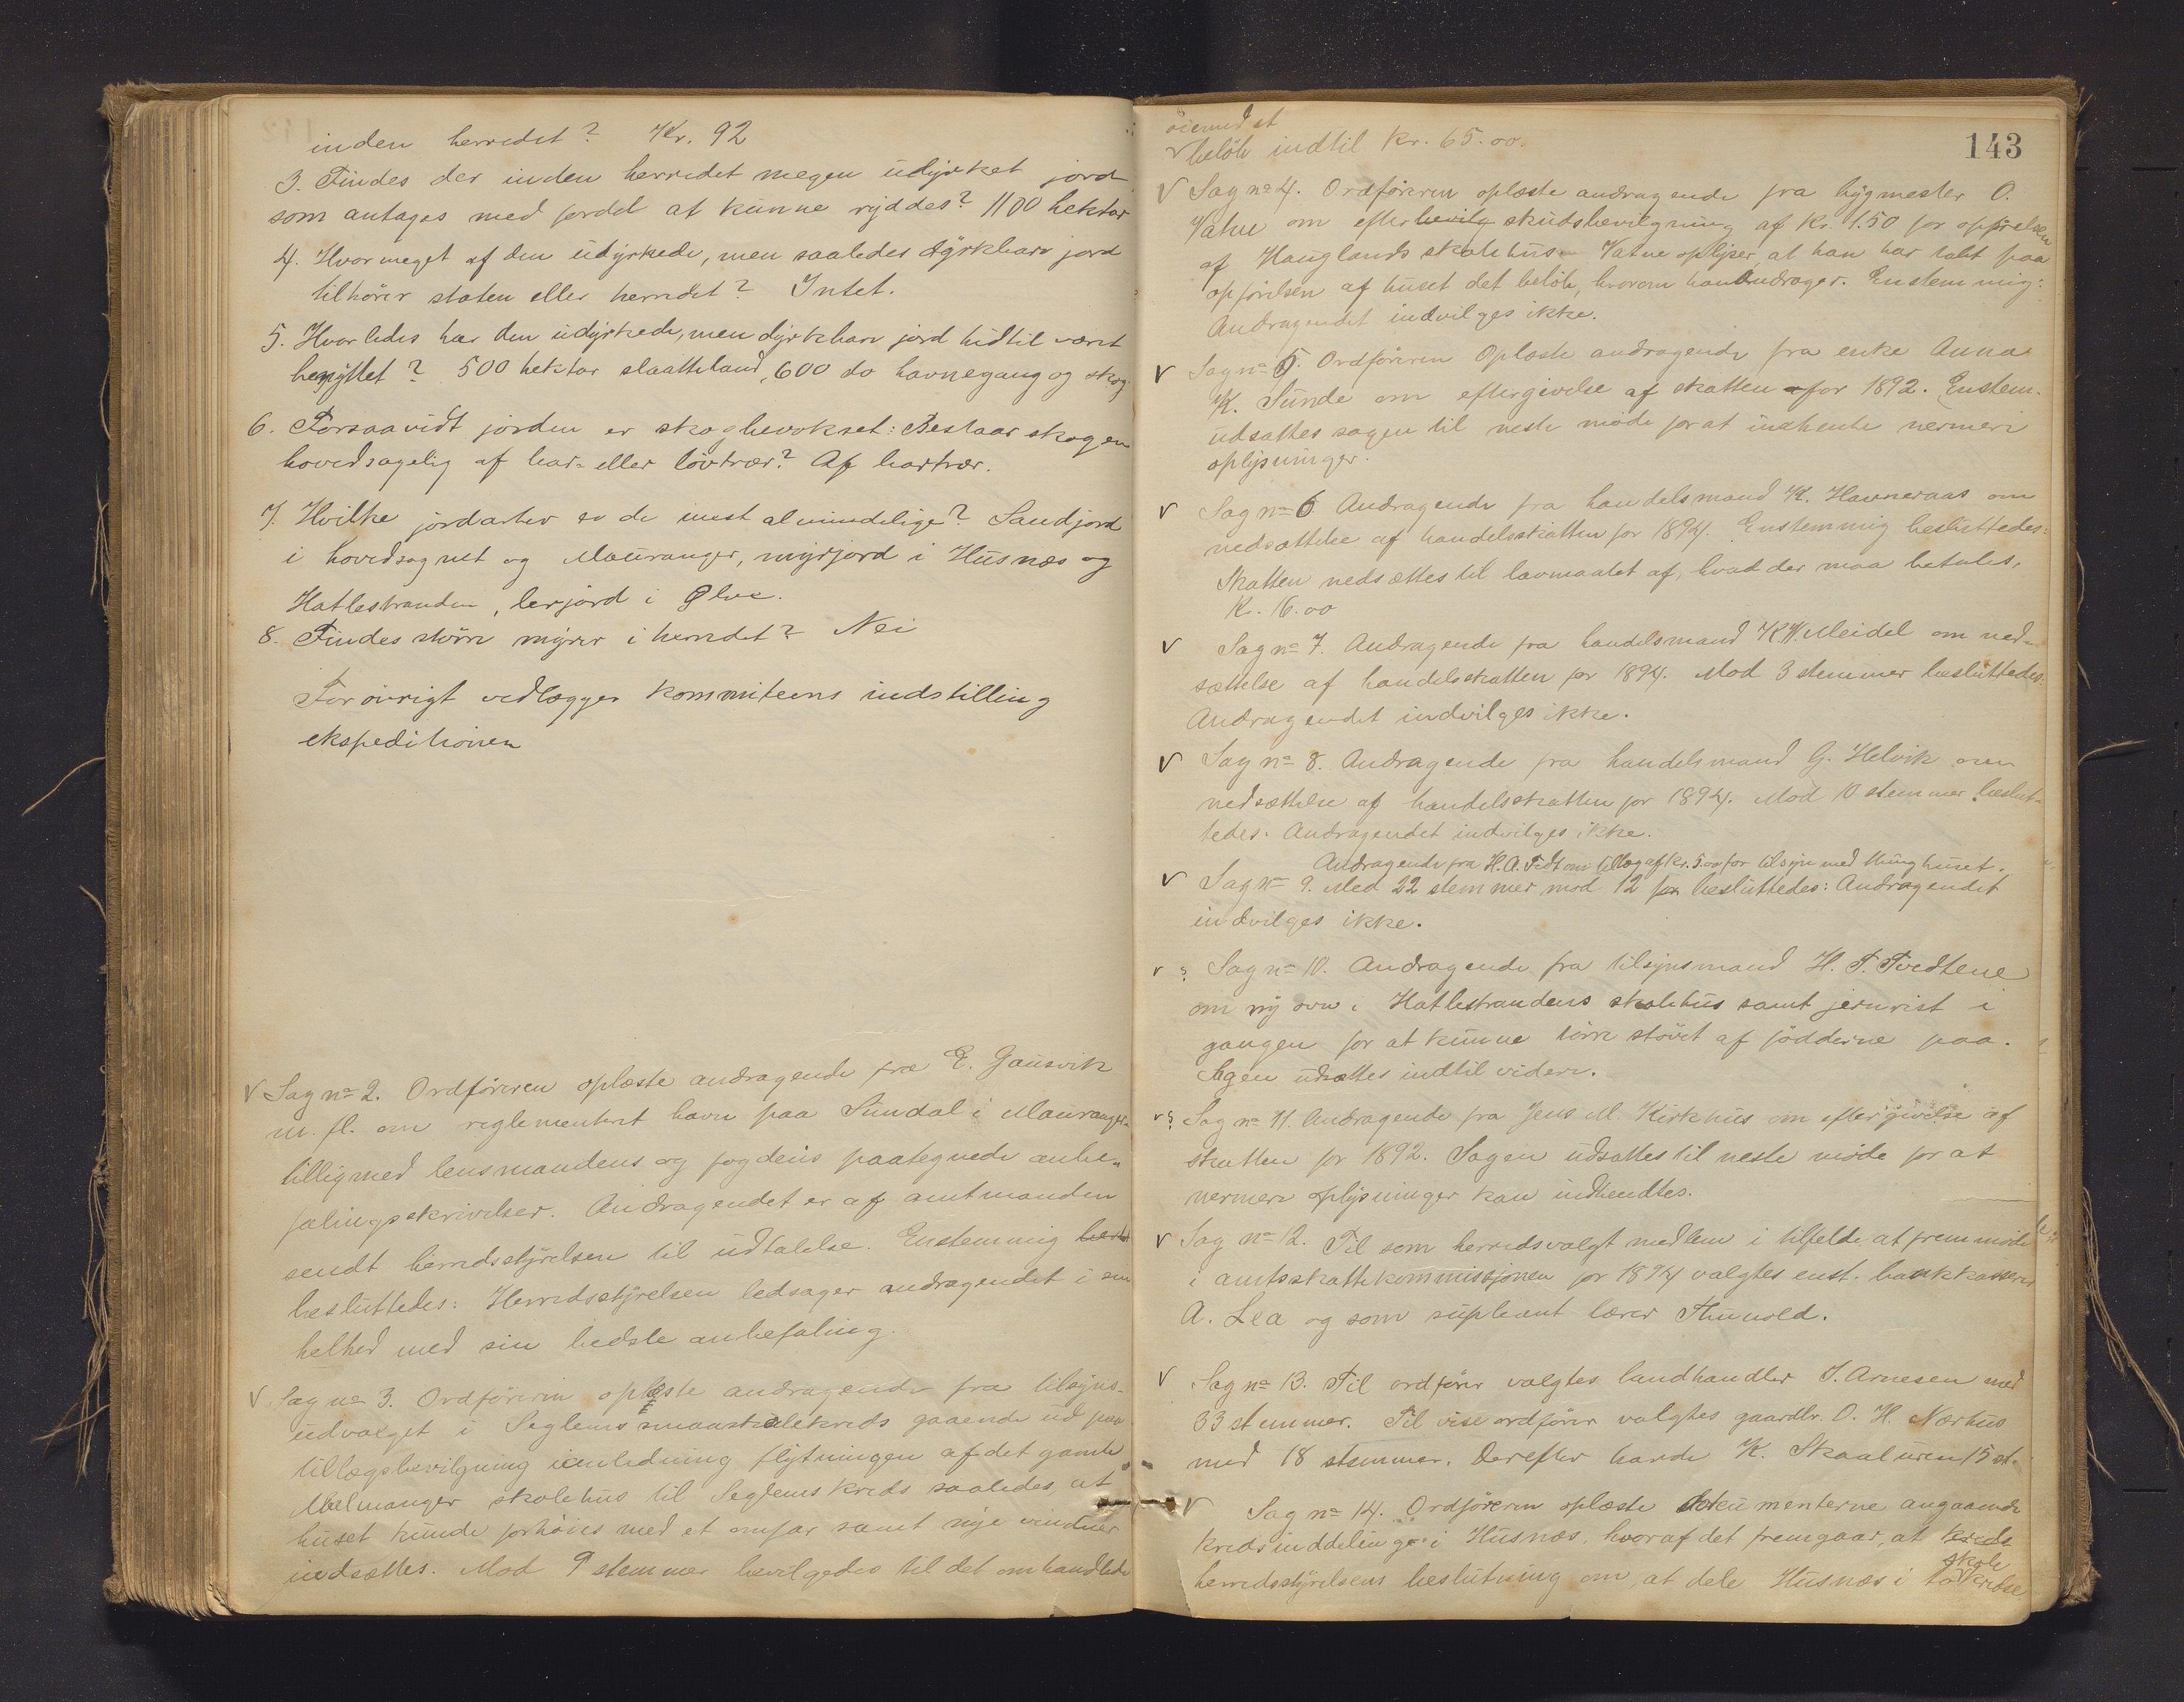 inden herredet? Kr. 92
3. Findes der inden herredet megen udyrket jord
som antages med fordel at kunne ryddes? 1100 hektar
4. Hvor meget af den udyrkede, men saaledes dyrkbare jord
tilhører staten eller herredet? Intet.
5. Hvorledes har den udyrkede, men dyrkbare jord hidtil været
benyttet? 500 hektar slaatteland, 600 do havnegang og skog.
6. Forsaavidt jorden er skogbevokset: Bestaar skogen
hovedsagelig af bar- eller løvtrær? Af bartrær.
7. Hvilke jordarter er de mest almindelige? Sandjord
i hovedsognet og Mauranger, myrjord i Husnæs og
Hatlestranden, lerjord i Ølve.
8. Findes større myrer i herredet? Nei
Forøvrigt vedlægges kommiteens indstilling
ekspeditionen
V Sag no 2. Ordføreren oplæste andragende fra E. Gausvik
m. fl. om reglementeret havn paa Sundal i Mauranger
tilligmed lensmandens og fogdens paategnede anbe-
falingsskrivelser. Andragendet er af amtmanden
sendt herredsstyrelsen til udtalelse. Enstemmig
besluttedes: Herredsstyrelsen ledsager andragendet i sin
helhed med sin bedste anbefaling.
V Sag no 3. Ordføreren oplæste andragende fra tilsyns-
udvalget i Seglems smaaskolekreds gaaende ud paa
tillægsbevilgning i anledning flytningen af det gamle
Melmanger skolehus til Seglems kreds saaledes, at
huset kunde forhøies med et omfar samt nye vinduer
indsættes. Mod 9 stemmer bevilgedes til det omhandlede
143
øiemed et
beløb indtil Kr. 65.00.
V Sag no 4. Ordføreren oplæste andragende fra bygmester O.
Vatne om efterbevilg skudsbevilgning af Kr. 1.50 for opførelsen
af Hauglands skolehus. Vatne oplyser, at han har tabt paa
opførelsen af huset det beløb, hvorom han andrager. Enstemmig:
Andragendet indvilges ikke.
V Sag no 5. Ordføreren Oplæste andragende fra enke Anna
K. Sunde om eftergivelse af skatten for 1892. Enstem.
udsattes sagen til neste møde for at indhente nermere
oplysninger.
V Sag no 6. Andragende fra handelsmand K. Havneraas om
nedsættelse af handelsskatten for 1894. Enstemmig besluttedes:
Skatten nedsættes til lavmaalet af, hvad der maa betales,
Kr. 16.00
V Sag no 7. Andragende fra handelsmand K. W. Meidel om ned-
sættelse af handelsskatten for 1894. Mod 3 stemmer besluttedes:
Andragendet indvilges ikke.
V Sag no 8. Andragende fra handelsmand G. Helvik om
nedsættelse af handelsskatten for 1894. Mod 10 stemmer beslut-
tedes: Andragendet indvilges ikke.
Andragende fra H. A. Tvedt om tillæg af kr. 5.00 for tilsyn med thinghuset.
V Sag no 9. Med 22 stemmer mod 12 besluttedes: Andragendet
indvilges ikke.
V Sag no 10. Andragende fra tilsynsmand H. T. Tvedtene
om ny ovn i Hatlestrandens skolehus samt jernrist i
gangen for at kunne tørre støvet af fødderne paa.
Sagen udsættes indtil videre.
V Sag no 11. Andragende fra Jens M. Kirkhus om eftergivelse af
skatten for 1892. Sagen udsattes til neste møde for at
nermere oplysninger kan indhentes.
V Sag no 12. Til som herredsvalgt medlem i tilfelde at fremmøde
i amtsskattekommissjonen for 1894 valgtes enst. bankkasserer
A. Lea og som supleant lærer Thunold.
V Sag no 13. Til ordfører valgtes landhandler J. Arnesen med
33 stemmer. Til viseordfører valgtes gaardbr. O. H. Nærhus
med 18 stemmer. Derefter havde K. Skaaluren 15 st.
V Sag no 14. Ordføreren oplæste dokumenterne angaaende
kredsinddelinge i Husnæs, hvoraf det fremgaar, at kreds
herredsstyrelsens beslutning om, at dele Husnæs i to skolekredse